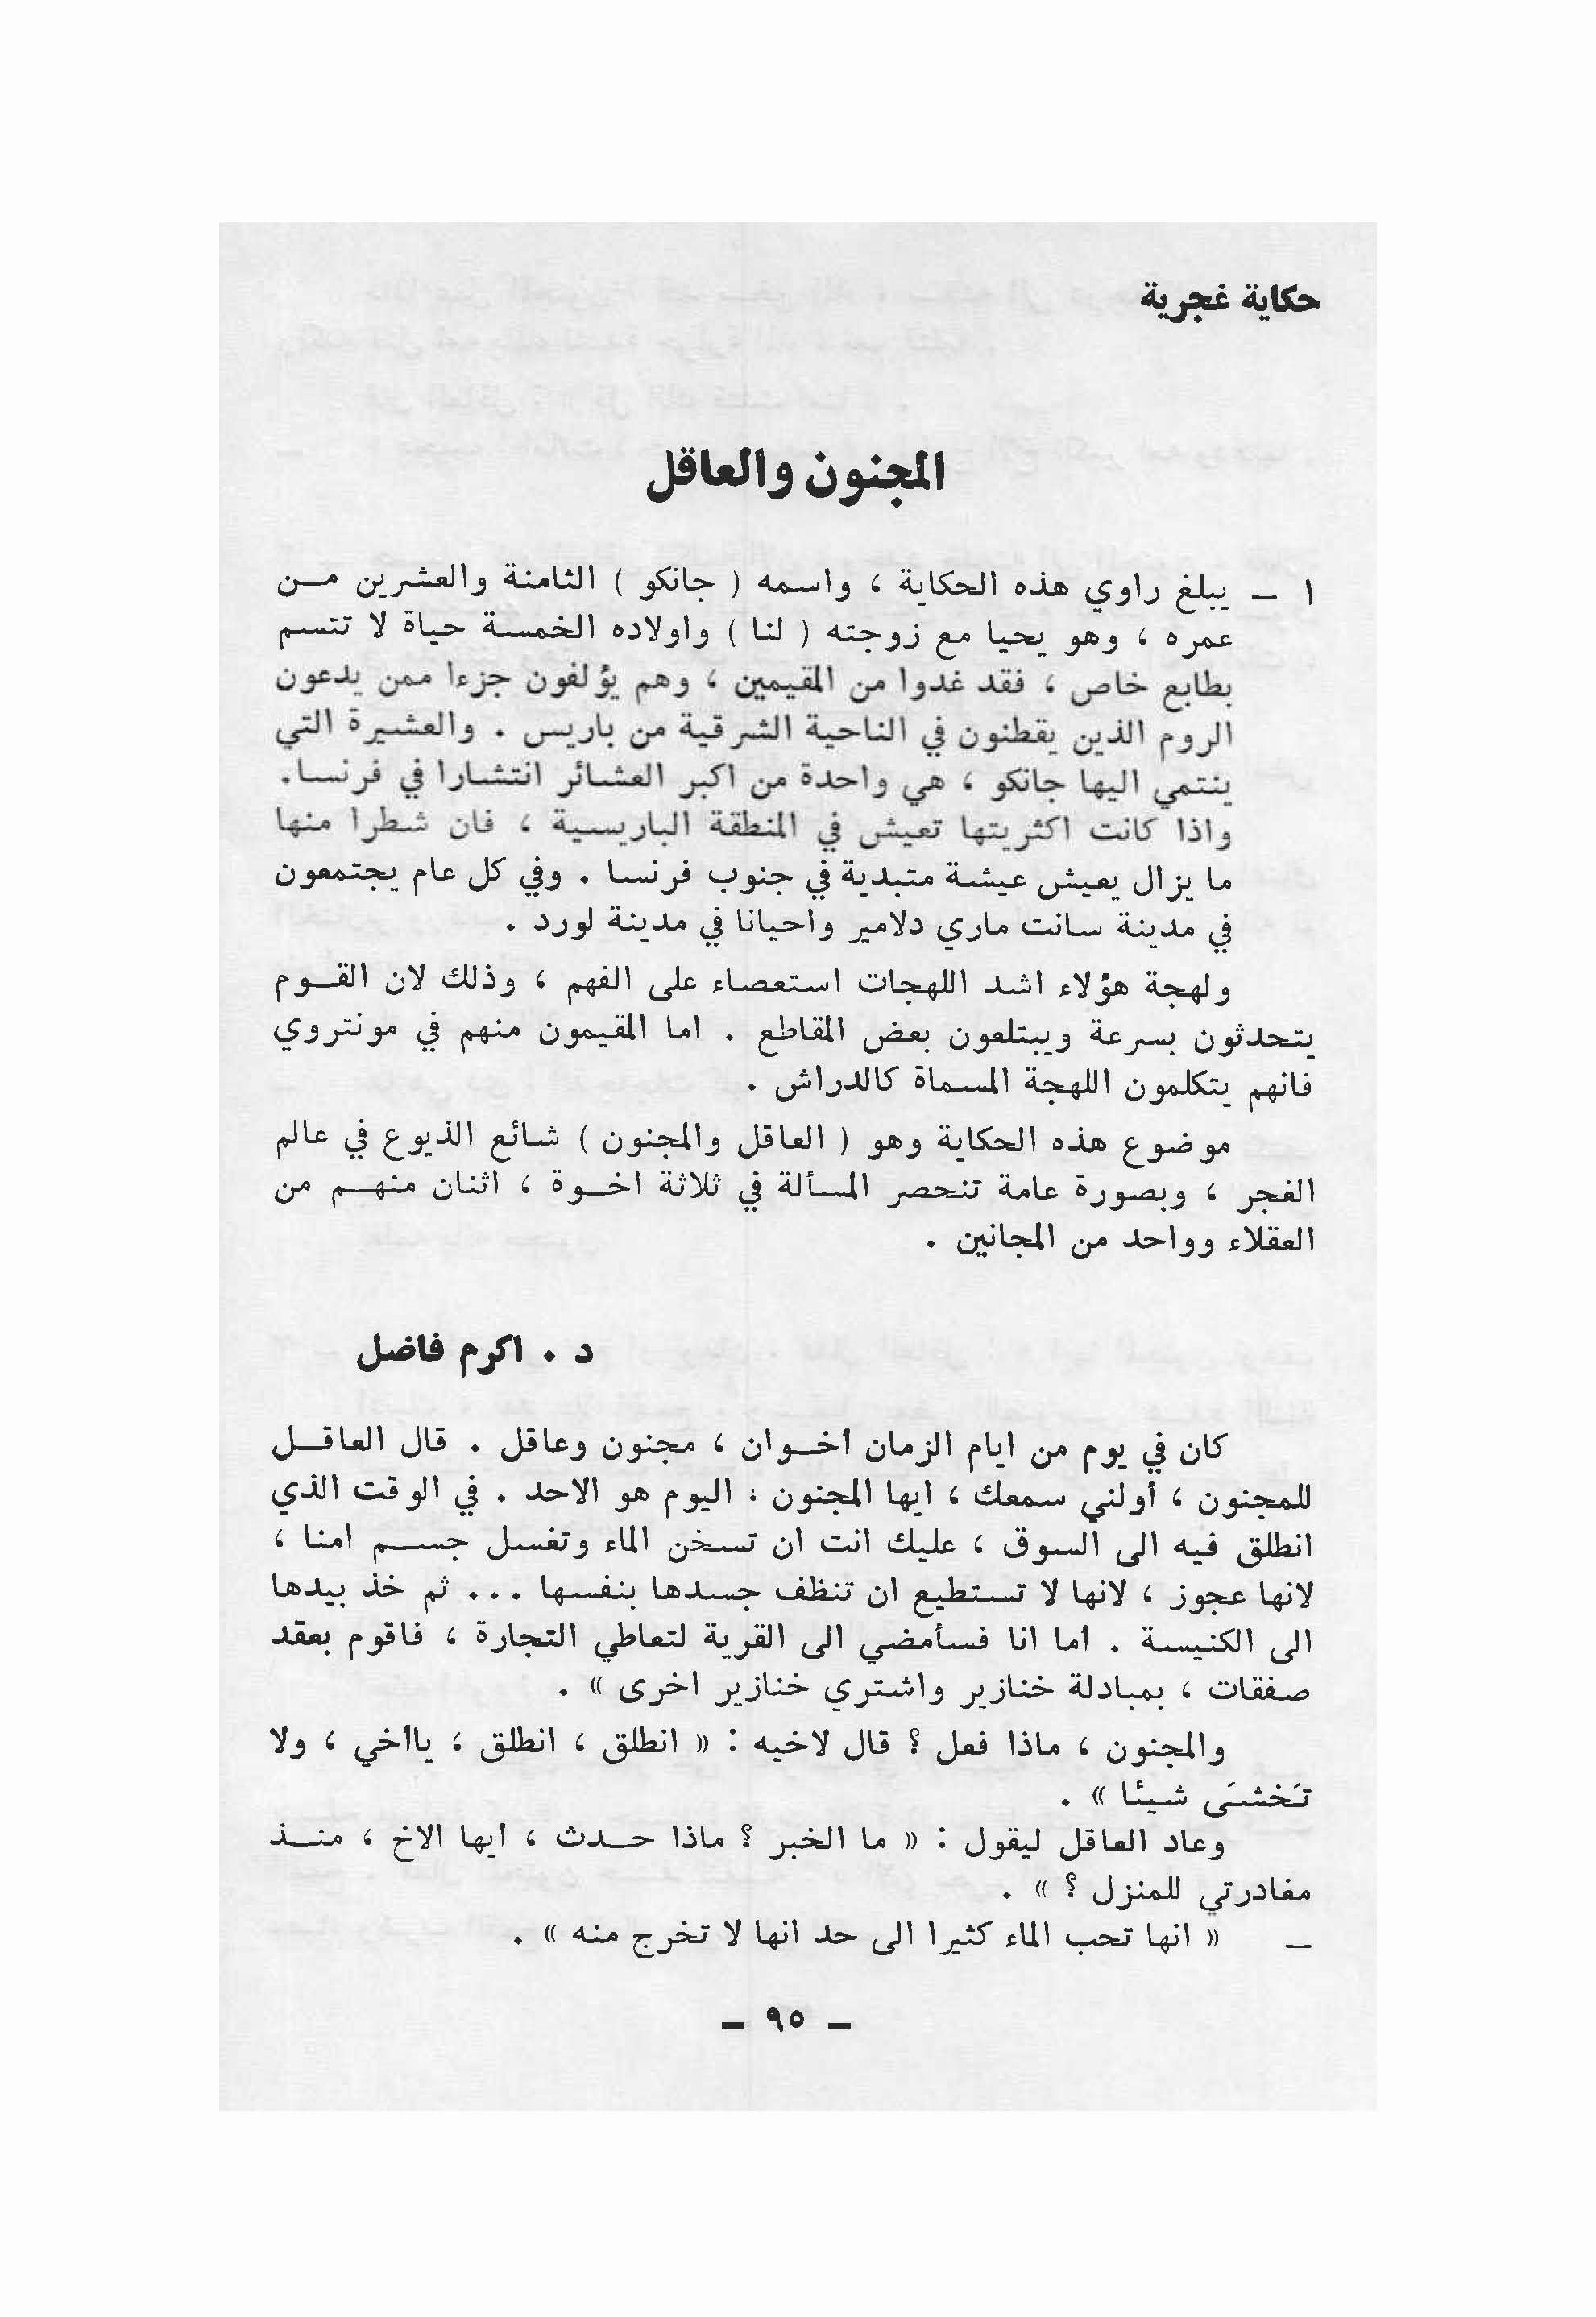 حكاية غجرية
المجنون والعاقل
١ – يبلغ راوي هذه الحكاية ، واسمه ( جانكو ) الثامنة والعشرين مـن
عمره ، وهو يحيا مع زوجته ( لنا ) واولاده الخمسة حياة لا تتسم
بطابع خاص ، فقد غدوا من المقيمين ، وهم يؤلفون جزءا ممن يدعون
الروم الذين يقطنون في الناحية الشرقية من باريس . والعشيرة التي
ينتمي اليها جانكو ، هي واحدة من اكبر العشائر انتشارا في فرنسا.
واذا كانت اكثريتها تعيش في المنطقة الباريسية ، فان شطرا منها
ما يزال يعيش عيشة متبدية في جنوب فرنسا . وفي كل عام يجتمعون
في مدينة سانت ماري دلامير واحيانا في مدينة لورد .
ولهجة هؤلاء اشد اللهجات استعصاء على الفهم ، وذلك لان القـوم
يتحدثون بسرعة ويبتلعون بعض المقاطع . اما المقيمون منهم في مونتروي
فانهم يتكلمون اللهجة المسماة كالدراش .
موضوع هذه الحكاية وهو ( العاقل والمجنون ) شائع الذيوع في عالم
الغجر ، وبصورة عامة تنحصر المسألة في ثلاثة اخـوة ، اثنان منهـم من
العقلاء وواحد من المجانين .
د . اكرم فاضل
كان في يوم من ايام الزمان أخـوان ، مجنون وعاقل . قال العاقـل
للمجنون ، أولني سمعك ، ايها المجنون : اليوم هو الاحد . في الوقت الذي
انطلق فيه الى السوق ، عليك انت ان تسخن الماء وتغسل جسـم امنا ،
لانها عجوز ، لانها لا تستطيع ان تنظف جسدها بنفسها ... ثم خذ بيدها
الى الكنيسة . أما انا فسأمضي الى القرية لتعاطي التجارة ، فاقوم بعقد
صفقات ، بمبادلة خنازير واشتري خنازير اخرى » .
والمجنون ، ماذا فعل ؟ قال لاخيه : « انطلق ، انطلق ، ياأخي ، ولا
تَخشىَ شيئا » .
وعاد العاقل ليقول : « ما الخبر ؟ ماذا حـدث ، أيها الاخ ، منـذ
مغادرتي للمنزل ؟ » .
– « انها تحب الماء كثيرا الى حد انها لا تخرج منه » .
– ٩٥ –